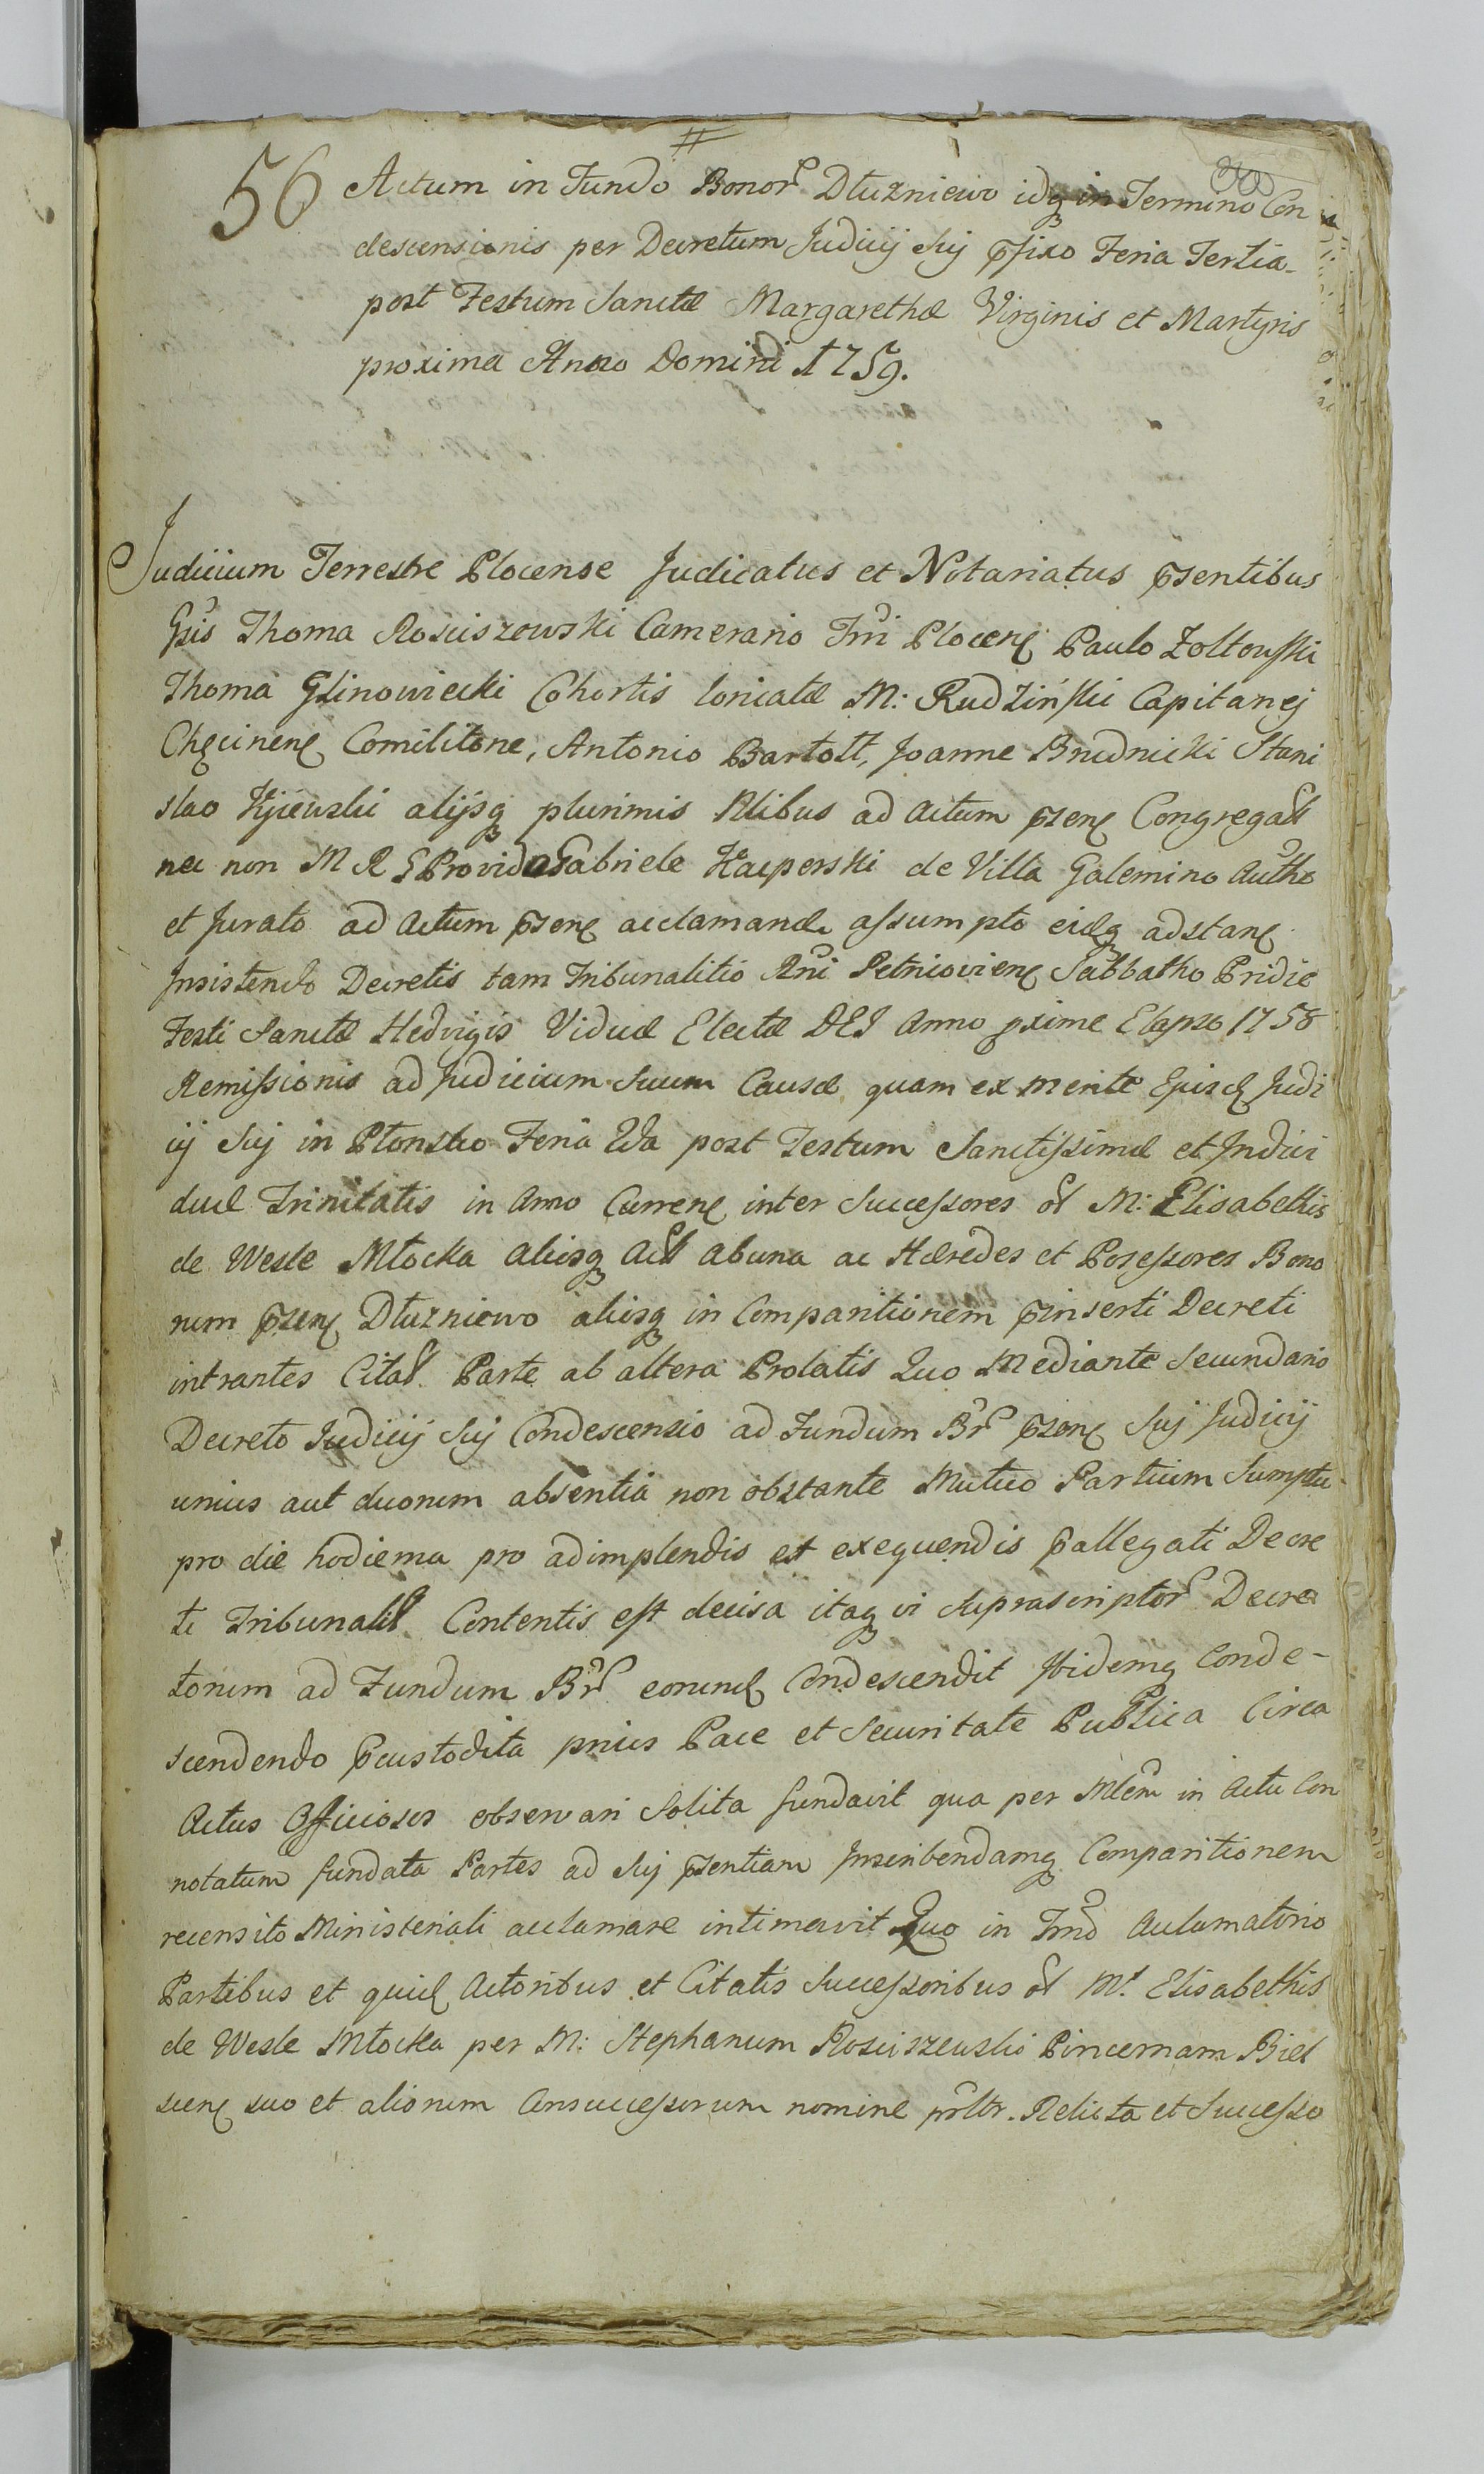 #
56 Actum in Fundo Bonor Dłużniewo idq in Termino Con
descensionis per Decretum Judicij Sui pfixo Feria Tertia
post Festum Sanctæ Margarethæ Virginis et Martyris
proxima Anno Domini 1759.
Judicium Terrestre Plocense Judicatus et Notariatus psentibus
Gsis Thoma Rosciszowski Camerario Tri Plocen Paulo Zołtowski
Thoma Glinowiecki Cohortis loricatæ M: Rudziński Capitanej
Chęcinen Comilitone, Antonio Bartołt, Joanne Brudnicki Stani
slao Kijewski alijsq plurimis Nlibus ad actum psen Congregatt
nec non M R G Provido Gabriele Kacperski de Villa Galemino Autho
et Jurato ad Actum psen acclamand assumpto eidq adstan
Insistendo Decretis tam Tribunalitio Rni Petricovien Sabbatho Pridie
Festi Sanctæ Hedvigis Viduæ Electæ DEI Anno pxime Elapso 1758
Remissionis ad Judicium Suum Causæ quam ex mente Ejusd Judi
cij Sui in Płonsko Feria IIda post Festum Sanctissimæ et Indivi
duæ Trinitatis in Anno Curren inter Successores ol M: Elisabethis
de Wesle Młocka aliosq Act ab una ac Hæredes et Posessores Bono
rum psen Dłużniewo aliosq in Comparitionem pinserti Decreti
intrantes Citat Parte ab altera Prolatis Quo Mediante Secundario
Decreto Judicij Sui Condescensio ad Fundum Br psen Sui Judicij
unius aut duorum absentia non obstante Mutuo Partium Sumptu
pro die hodierna pro adimplendis et exequendis pallegati Decre
ti Tribunalit Contentis est decisa itaq vi Suprascriptor Decre
torum ad Fundum Br eorund Condescendit Ibidemq Conde-
scendendo pcustodita prius Pace et Securitate Publica Circa
Actus Officiosos observari Solita fundavit qua per Mlem in Actu Con
notatum fundata Partes ad Sui psentiam Inscribendamq Comparitionem
recensito Ministeriali acclamare intimavit Quo in Tmo Acclamatorio
Partibus et quid Actoribus et Citatis Successoribus ol M: Elisabethis
de Wesle Młocka per M: Stephanum Rosciszewski Pincernam Biel
scen suo et aliorum Consuccessorum nomine Relicta et Successo